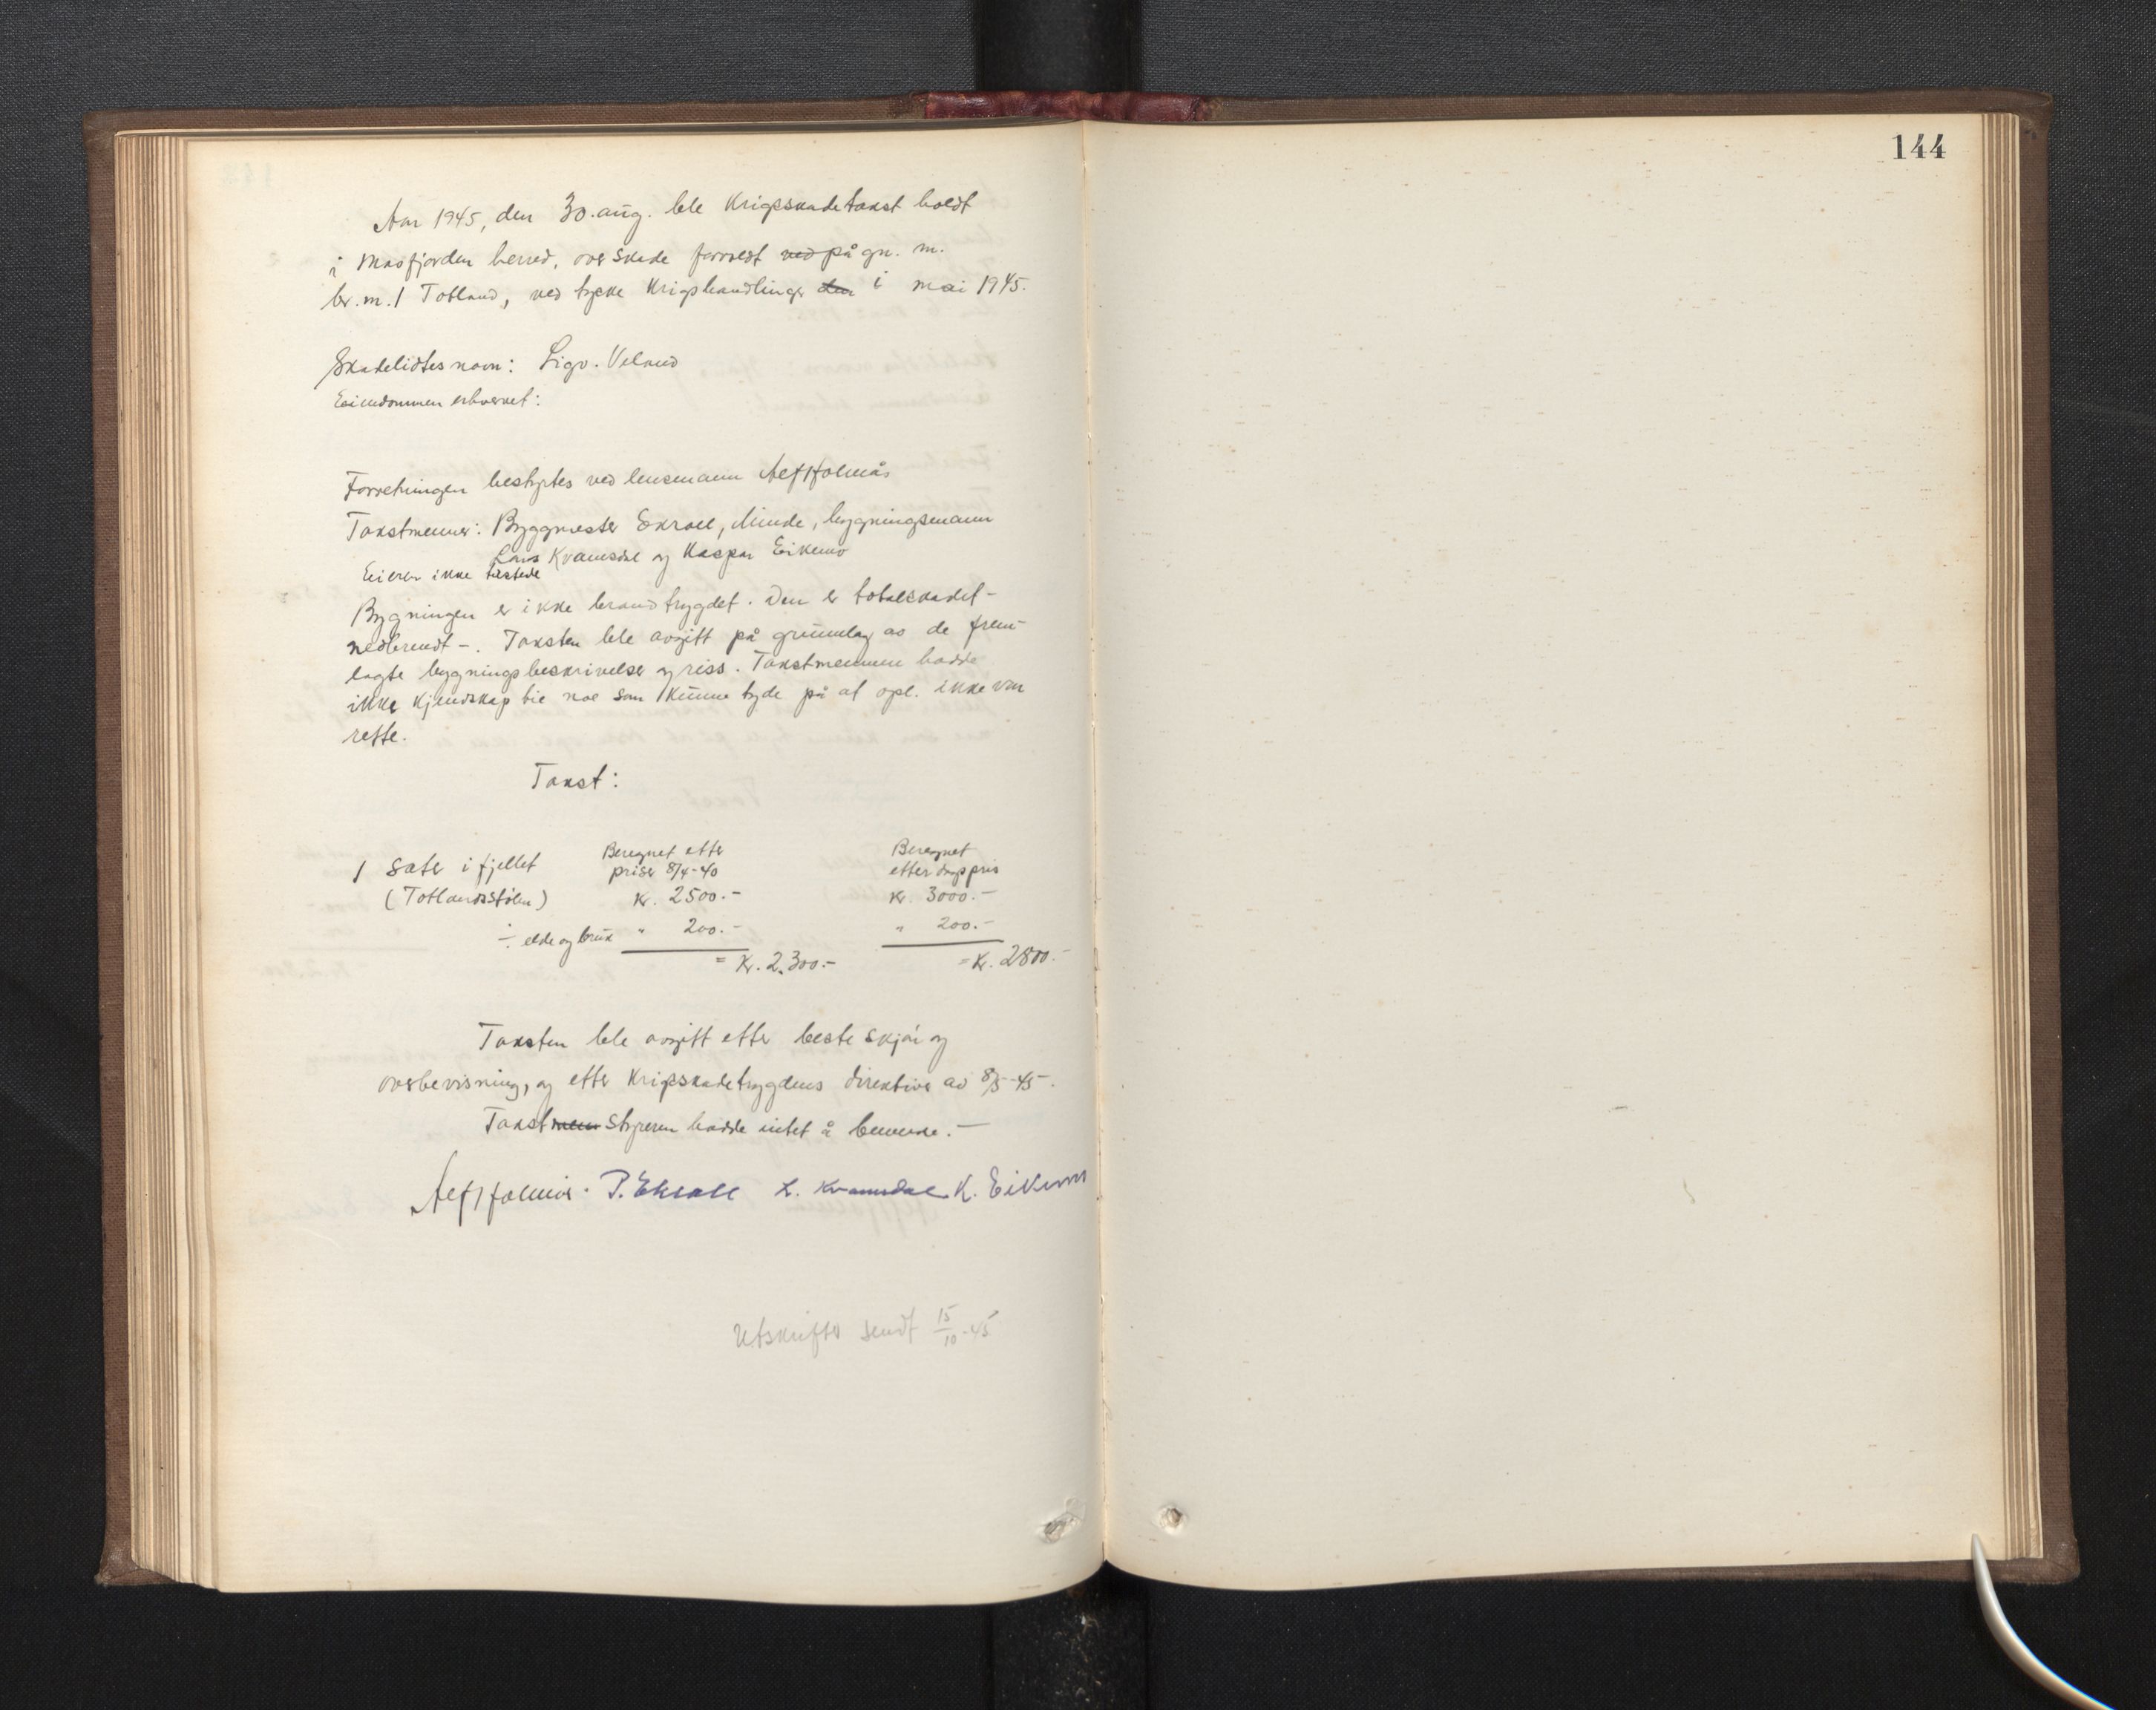 144
Aar 1945, den 30. aug. ble Krigsskadetakst holdt
i Masfjorden herred, over skade forvoldt ved på gn. m.
br. m. 1 Totland, ved tyske Krigshandlinger den i mai 1945.
Skadelidtes navn: Sigv. Veland
Eiendommen erhvervet:
Forretningen bestyrtes ved lensmann Alf Holmås
Takstmenner: Byggmester Ekroll, Minde, bygningsmann
Lars Kvamsdal og Kaspar Eikemo
Eieren ikke tilstede
Bygningen er ikke brandtrygdet. Den er totalskadet -
nedbrendt -. Taksten ble avgitt på grunnlag av de frem-
lagte bygningsbeskrivelser og riss. Takstmennene hadde
ikke kjendskap til noe som kunne tyde på at opl. ikke var
rette.
Takst:
1 sæter i fjellet Beregnet etter priser 8/4-40 Beregnet etter dagspris
(Totlandsstølen) Kr. 2500.- Kr. 3000.-
÷ elde og bruk " 200.- " 200.-
= Kr. 2.300.- = Kr. 2800.-
Taksten ble avgitt etter beste skjøn og
overbevisning, og etter Krigsskadetrygdens direktiver av 8/5-45.
Takstmen styreren hadde intet å bemerke. -
Alf Holmås. P. Ekroll L. Kvamsdal K. Eikemo
Utskrifter sendt 15/10-45